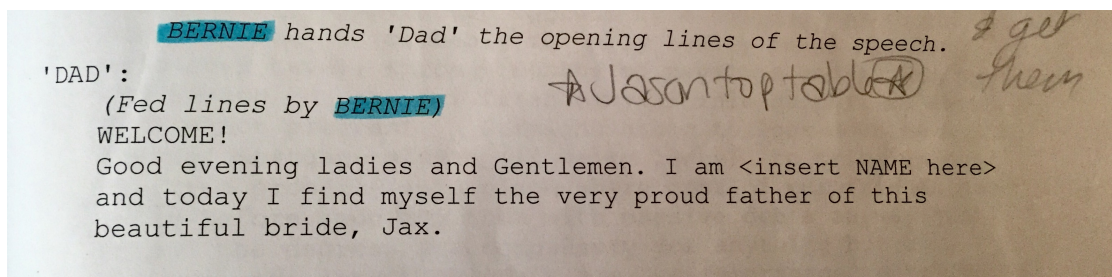 BERNIE hands 'Dad' the opening lines of the speech.
& get
them
'DAD':
☆Jason top table☆
(Fed lines by BERNIE)
WELCOME!
Good evening ladies and Gentlemen. I am <insert NAME here>
and today I find myself the very proud father of this
beautiful bride, Jax.